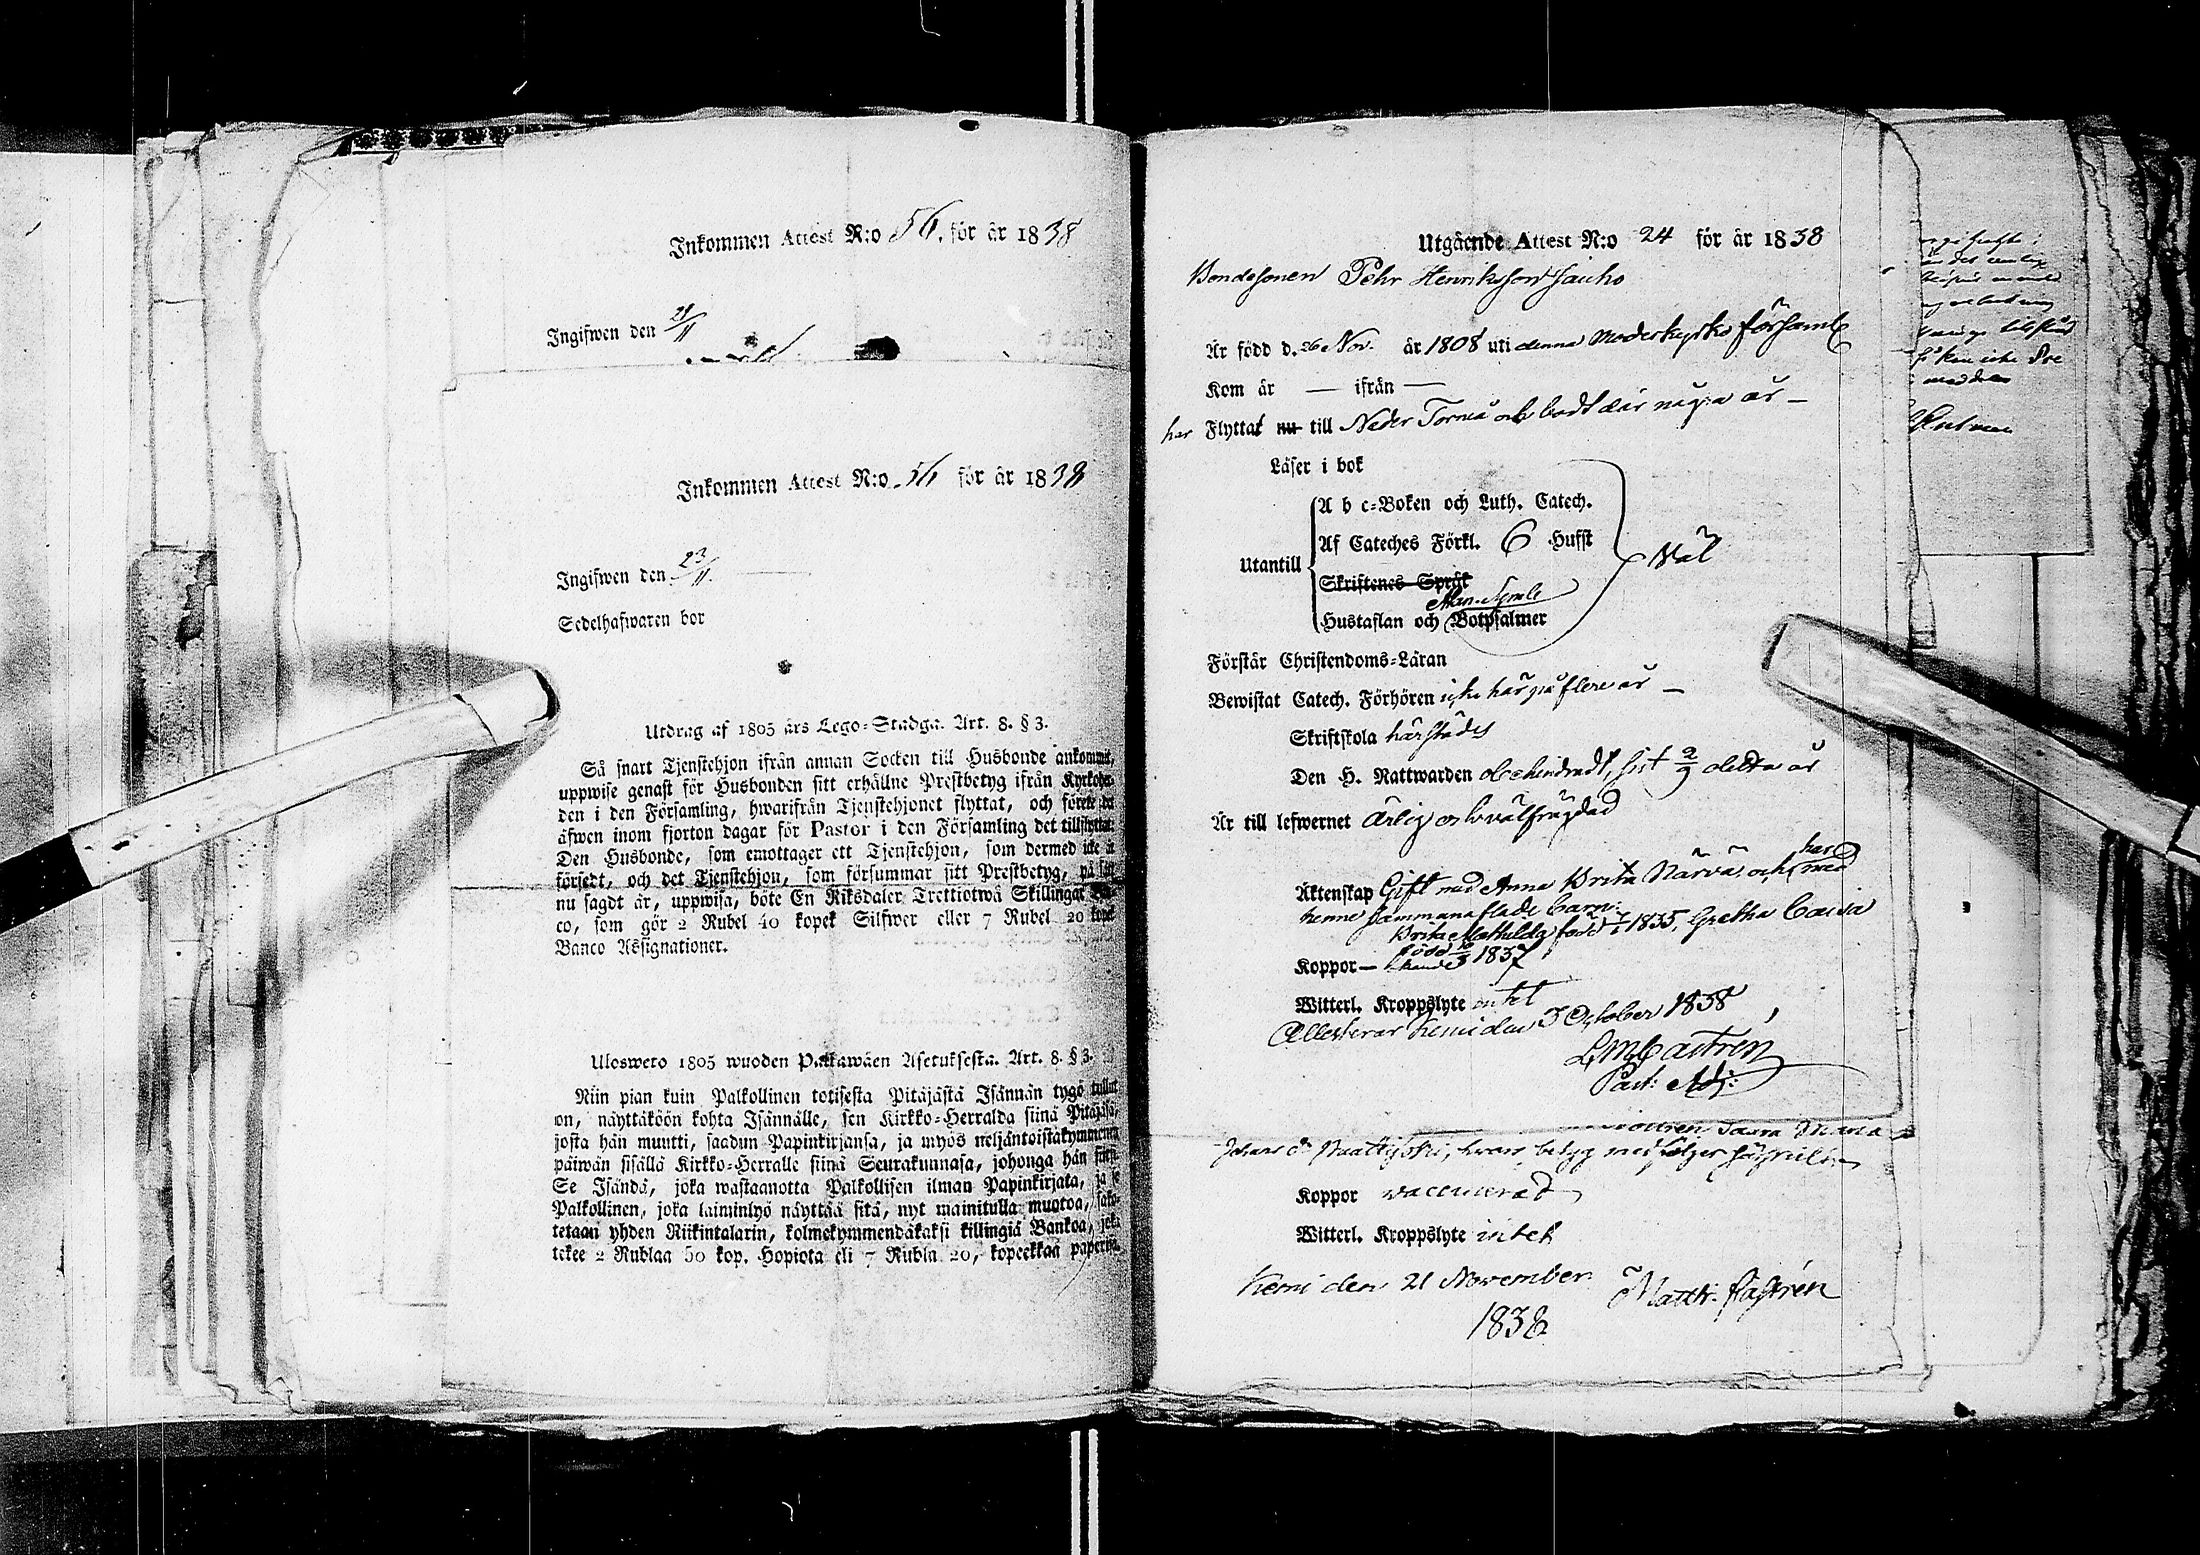 Inkommen Attest N:o 56. för år 1838
Ingifwen den 21/11
Inkommen Attest N:o 56 för år 1838
Ingifwen den 23/11.
Sedelhafwaren bor
Utdrag af 1805 års Lego-Stadga. Art. 8. § 3.
Så snart Tjenstehjon ifrån annan Socken till Husbonde ankommit,
uppwise genast för Husbonden sitt erhållne Prestbetyg ifrån Kyrkoher-
den i den Församling, hwarifrån Tjenstehjonet flyttat, och förete det
äfwen inom fjorton dagar för Pastor i den Församling det tillflyttat.
Den Husbonde, som emottager ett Tjenstehjon, som dermed icke är
försedt, och det Tjenstehjon, som försummar sitt Prestbetyg, på sätt
nu sagdt är, uppwisa, böte En Riksdaler Trettiotwå Skillingar Ban-
co, som gör 2 Rubel 40 kopek Silfwer eller 7 Rubel 20 kopek
Banco Assignationer.
Uloswето 1805 wuoden Palkawäen Asetuksesta. Art. 8. § 3.
Niin pian kuin Palkollinen toisesta Pitäjästä Isännän tygö tullut
on, näyttäköön kohta Isännälle, sen Kirkko-Herralda siinä Pitäjäsä,
josta hän muutti, saadun Papinkirjansa, ja myös neljäntoistakymmenen
päiwän sisällä Kirkko-Herralle siinä Seurakunnasa, johonga hän
Se Isändä, joka wastaanotta Palkollisen ilman Papinkirjata, ja se
Palkollinen, joka laiminlyö näyttää sitä, nyt mainitulla muotoa, sako-
tetaan yhden Riikintalarin, kolmekymmendäkaksi killingiä Bankoa, joka
tekee 2 Rublaa 50 kop. Hopiota eli 7 Rubla 20, kopeekkaa paperisa.
Utgående Attest N:o 24 för år 1838
Bondesonen Pehr Henriksson Sauho
Är född d. 26 Nov. år 1808 uti denna Moderkyrko församl
Kom år — ifrån —
har Flyttat nu till Neder Torneå och bodt där några år —
Läser i bok
A b c-Boken och Luth. Catech.
Af Cateches Förkl. 6 Hufst
Utantill Väl
Skriftenes Språk
Athan. Symb.
Hustaflan och Botpsalmer
Förstår Christendoms-Läran
Bewistat Catech. Förhören icke här på flere år —
Skriftskola härstädes
Den H. Nattwarden obehindradt, sist 2/9 detta år
Är till lefwernet Ärlig och välfrägdad
har
Äktenskap Gift med Anna Brita Närvä och med
henne sammanaflade barn:
Brita Mathilda född 1835, Gretha Caisa
född 1837
Koppor —
Witterl. Kroppslyte intet
Attesterar Kemi den 3 October 1838
L M Castrén
Past: Adj:
Koppor vaccinerad
Witterl. Kroppslyte intet
Kemi den 21 November
1838
Matth. Castrén